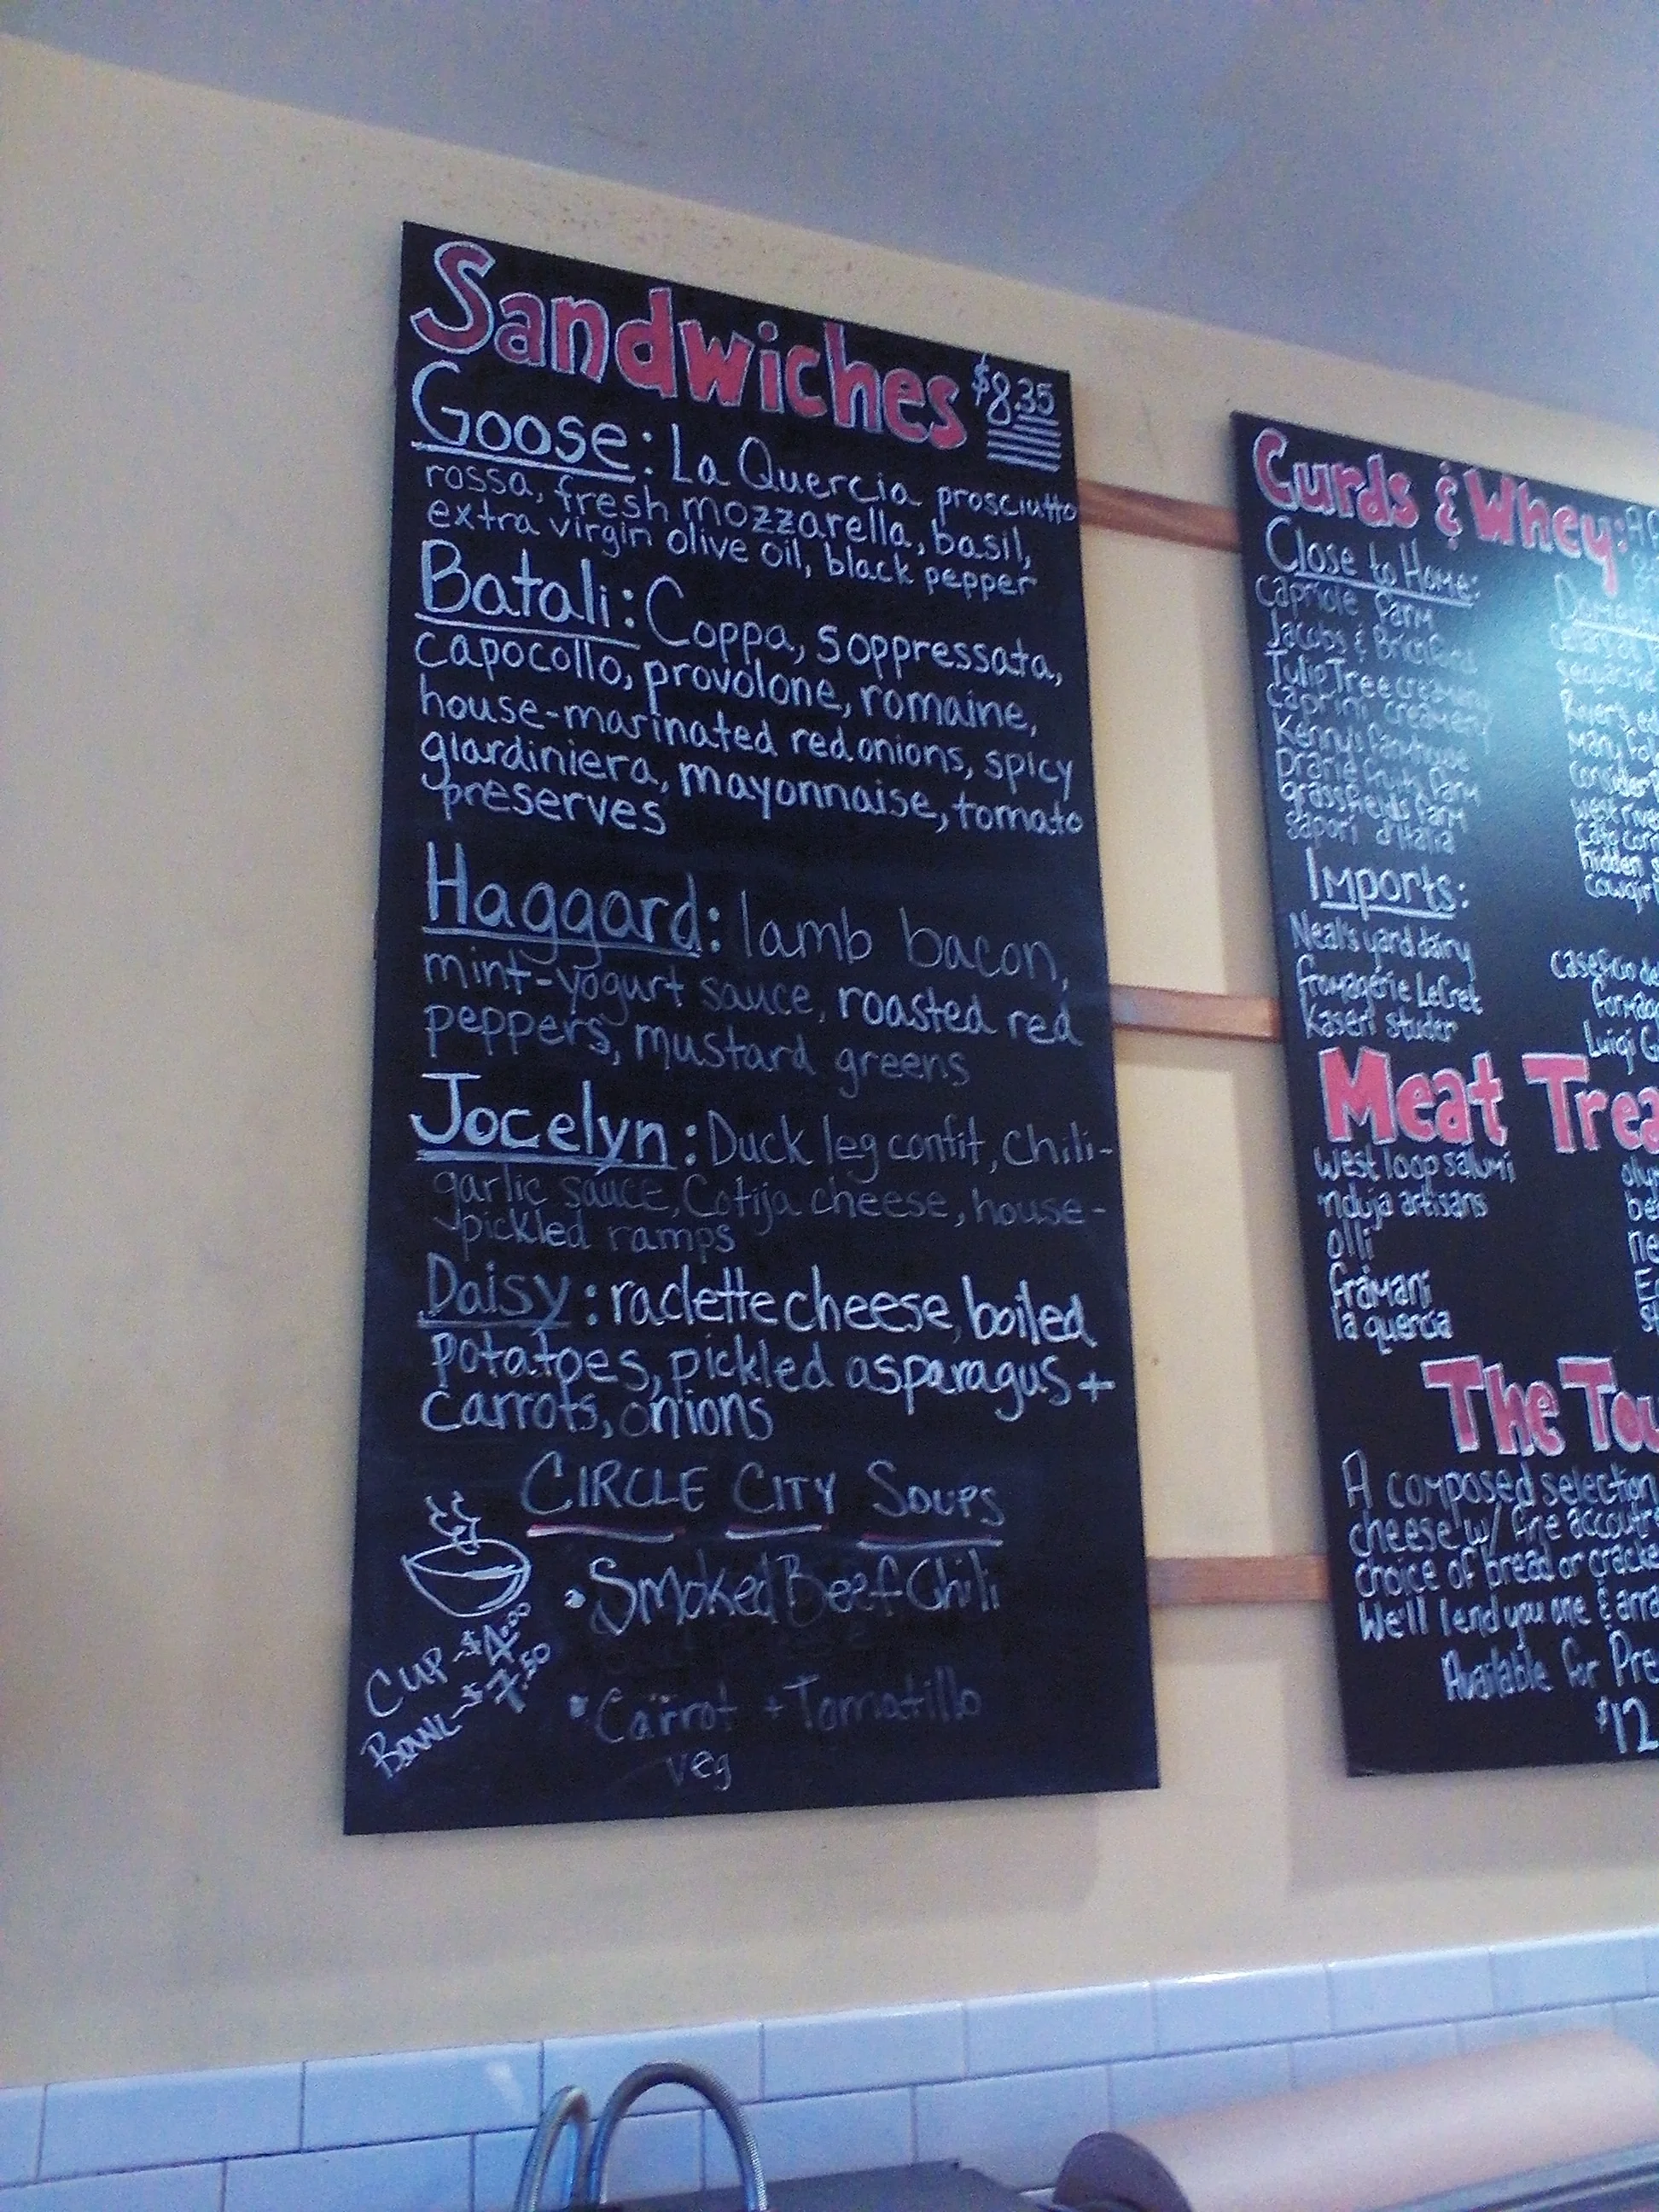 Sandwiches $8.35
Goose: La Quercia prosciutto
rossa, fresh mozzarella, basil,
extra virgin olive oil, black pepper
Batali: Coppa, soppressata,
capocollo, provolone, romaine,
house-marinated red onions, spicy
giardiniera, mayonnaise, tomato
preserves
Haggard: lamb bacon,
mint-yogurt sauce, roasted red
peppers, mustard greens
Jocelyn: Duck leg confit, chili-
garlic sauce, Cotija cheese, house-
pickled ramps
Daisy: raclette cheese, boiled
potatoes, pickled asparagus +
carrots, onions
CIRCLE CITY SOUPS
• Smoked Beef Chili
• Carrot + Tomatillo
veg
CUP - $4.00
BOWL - $7.50
Curds & Whey:
Close to Home:
Capriole farm
Jacobs & Brichford
Tulip Tree creamery
Caprini creamery
Kenny's farmhouse
Prarie fruits farm
grassfields farm
sapori d'Italia
Imports:
Neal's yard dairy
fromagerie LeCret
kaseri studer
Luigi G
Meat Trea
west loop salumi
nduja artisans
olli
framani
la quercia
The Tou
A composed selection
cheese w/ fine accoutr
choice of bread or cracke
We'll lend you one & arra
Available for Pre
$12